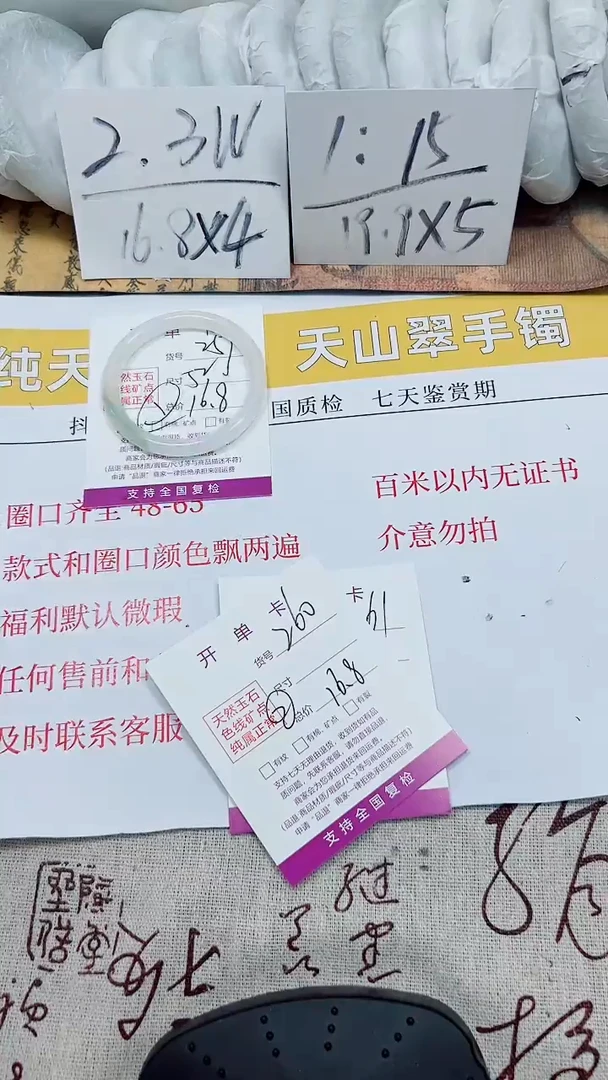 2.3W
16.8X4
1:15
19.9X5
纯天
天山翠手镯
抖
国质检 七天鉴赏期
单
货号 259
然玉石
线矿点
属正常
尺寸
总价 16.8
支持全国复检
圈口齐全 48-65
款式和圈口颜色飘两遍
福利默认微瑕
任何售前和
及时联系客服
百米以内无证书
介意勿拍
卡
51
开单卡
货号 260
天然玉石
色线矿点
纯属正常
尺寸
总价 16.8
有纹 有棉、矿点 有裂
支持七天无理由退货,收到货如有品
质问题,先联系客服,请勿直接品退,
商家会为您承担退货来回运费
(品退:商品材质/瑕疵/尺寸等与商品描述不符)
申请“品退”商家一律拒绝承担来回运费
支持全国复检